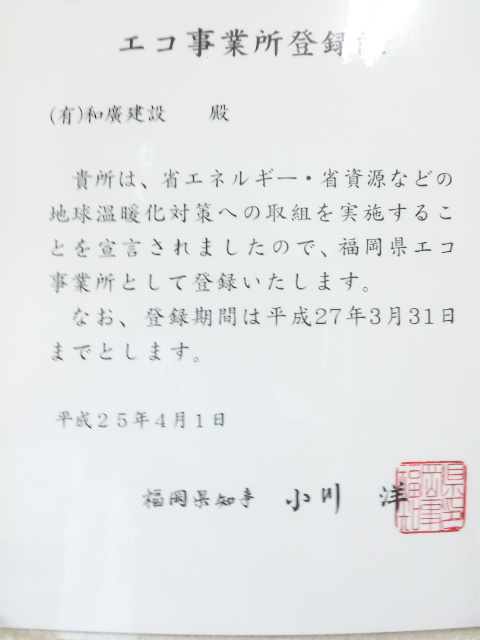 エコ事業所登録
(有)和廣建設　殿
貴所は、省エネルギー・省資源などの
地球温暖化対策への取組を実施するこ
とを宣言されましたので、福岡県エコ
事業所として登録いたします。
なお、登録期間は平成27年3月31日
までとします。
平成25年4月1日
福岡県知事　小川　洋